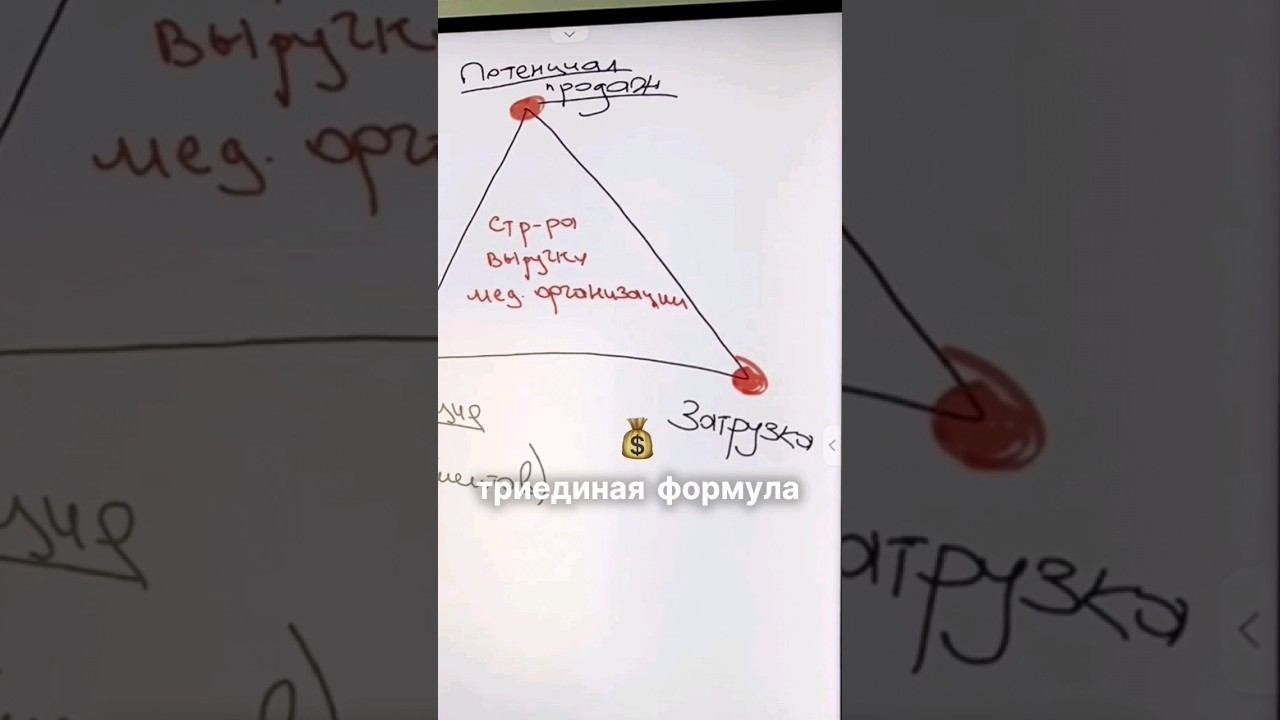 Потенциал
продаж
Стр-ра
выручки
мед. организации
Загрузка
триединая формула